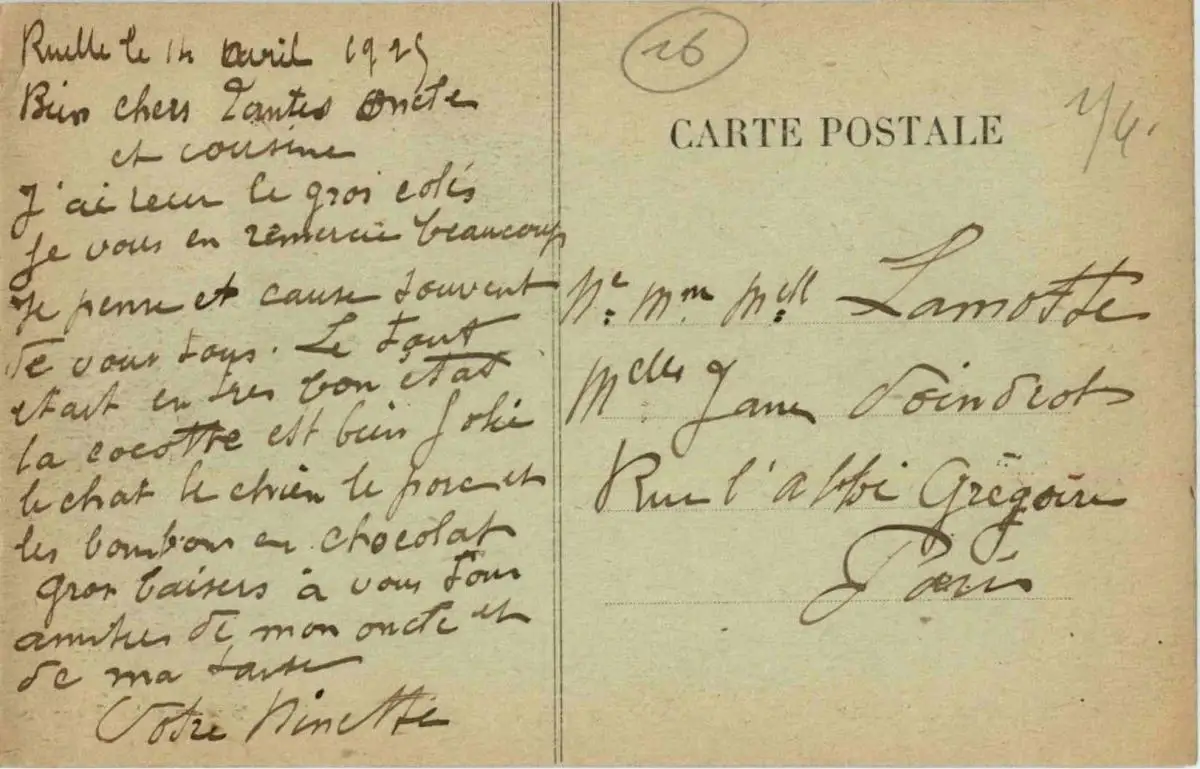 Ruelle le 14 avril 1925
Bien chers Tantes Oncle
et cousine
J'ai recu le gros colis
je vous en remercie beaucoup
Je pense et cause souvent
de vous tous. Le tout
etait en tres bon état
la cocotte est bien jolie
le chat le chien le porc et
les bombons en chocolat
gros baisers à vous tous
amities de mon oncle et
de ma tante
Votre Ninette
26
CARTE POSTALE
Mr. Mme Melle Lamotte
Melles Jane
Rue l'abbé Grégoire
Paris